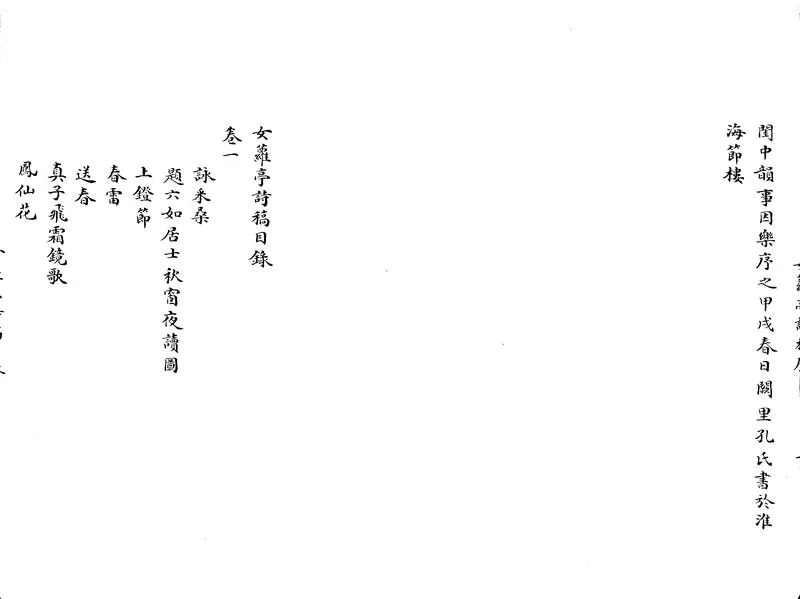 閨中韻事因樂序之甲戌春日闕里孔氏書於淮
海節樓
女蘿亭詩稿目錄
卷一
詠采桑
題六如居士秋窗夜讀圖
上鐙節
春雷
送春
真子飛霜鏡歌
鳳仙花